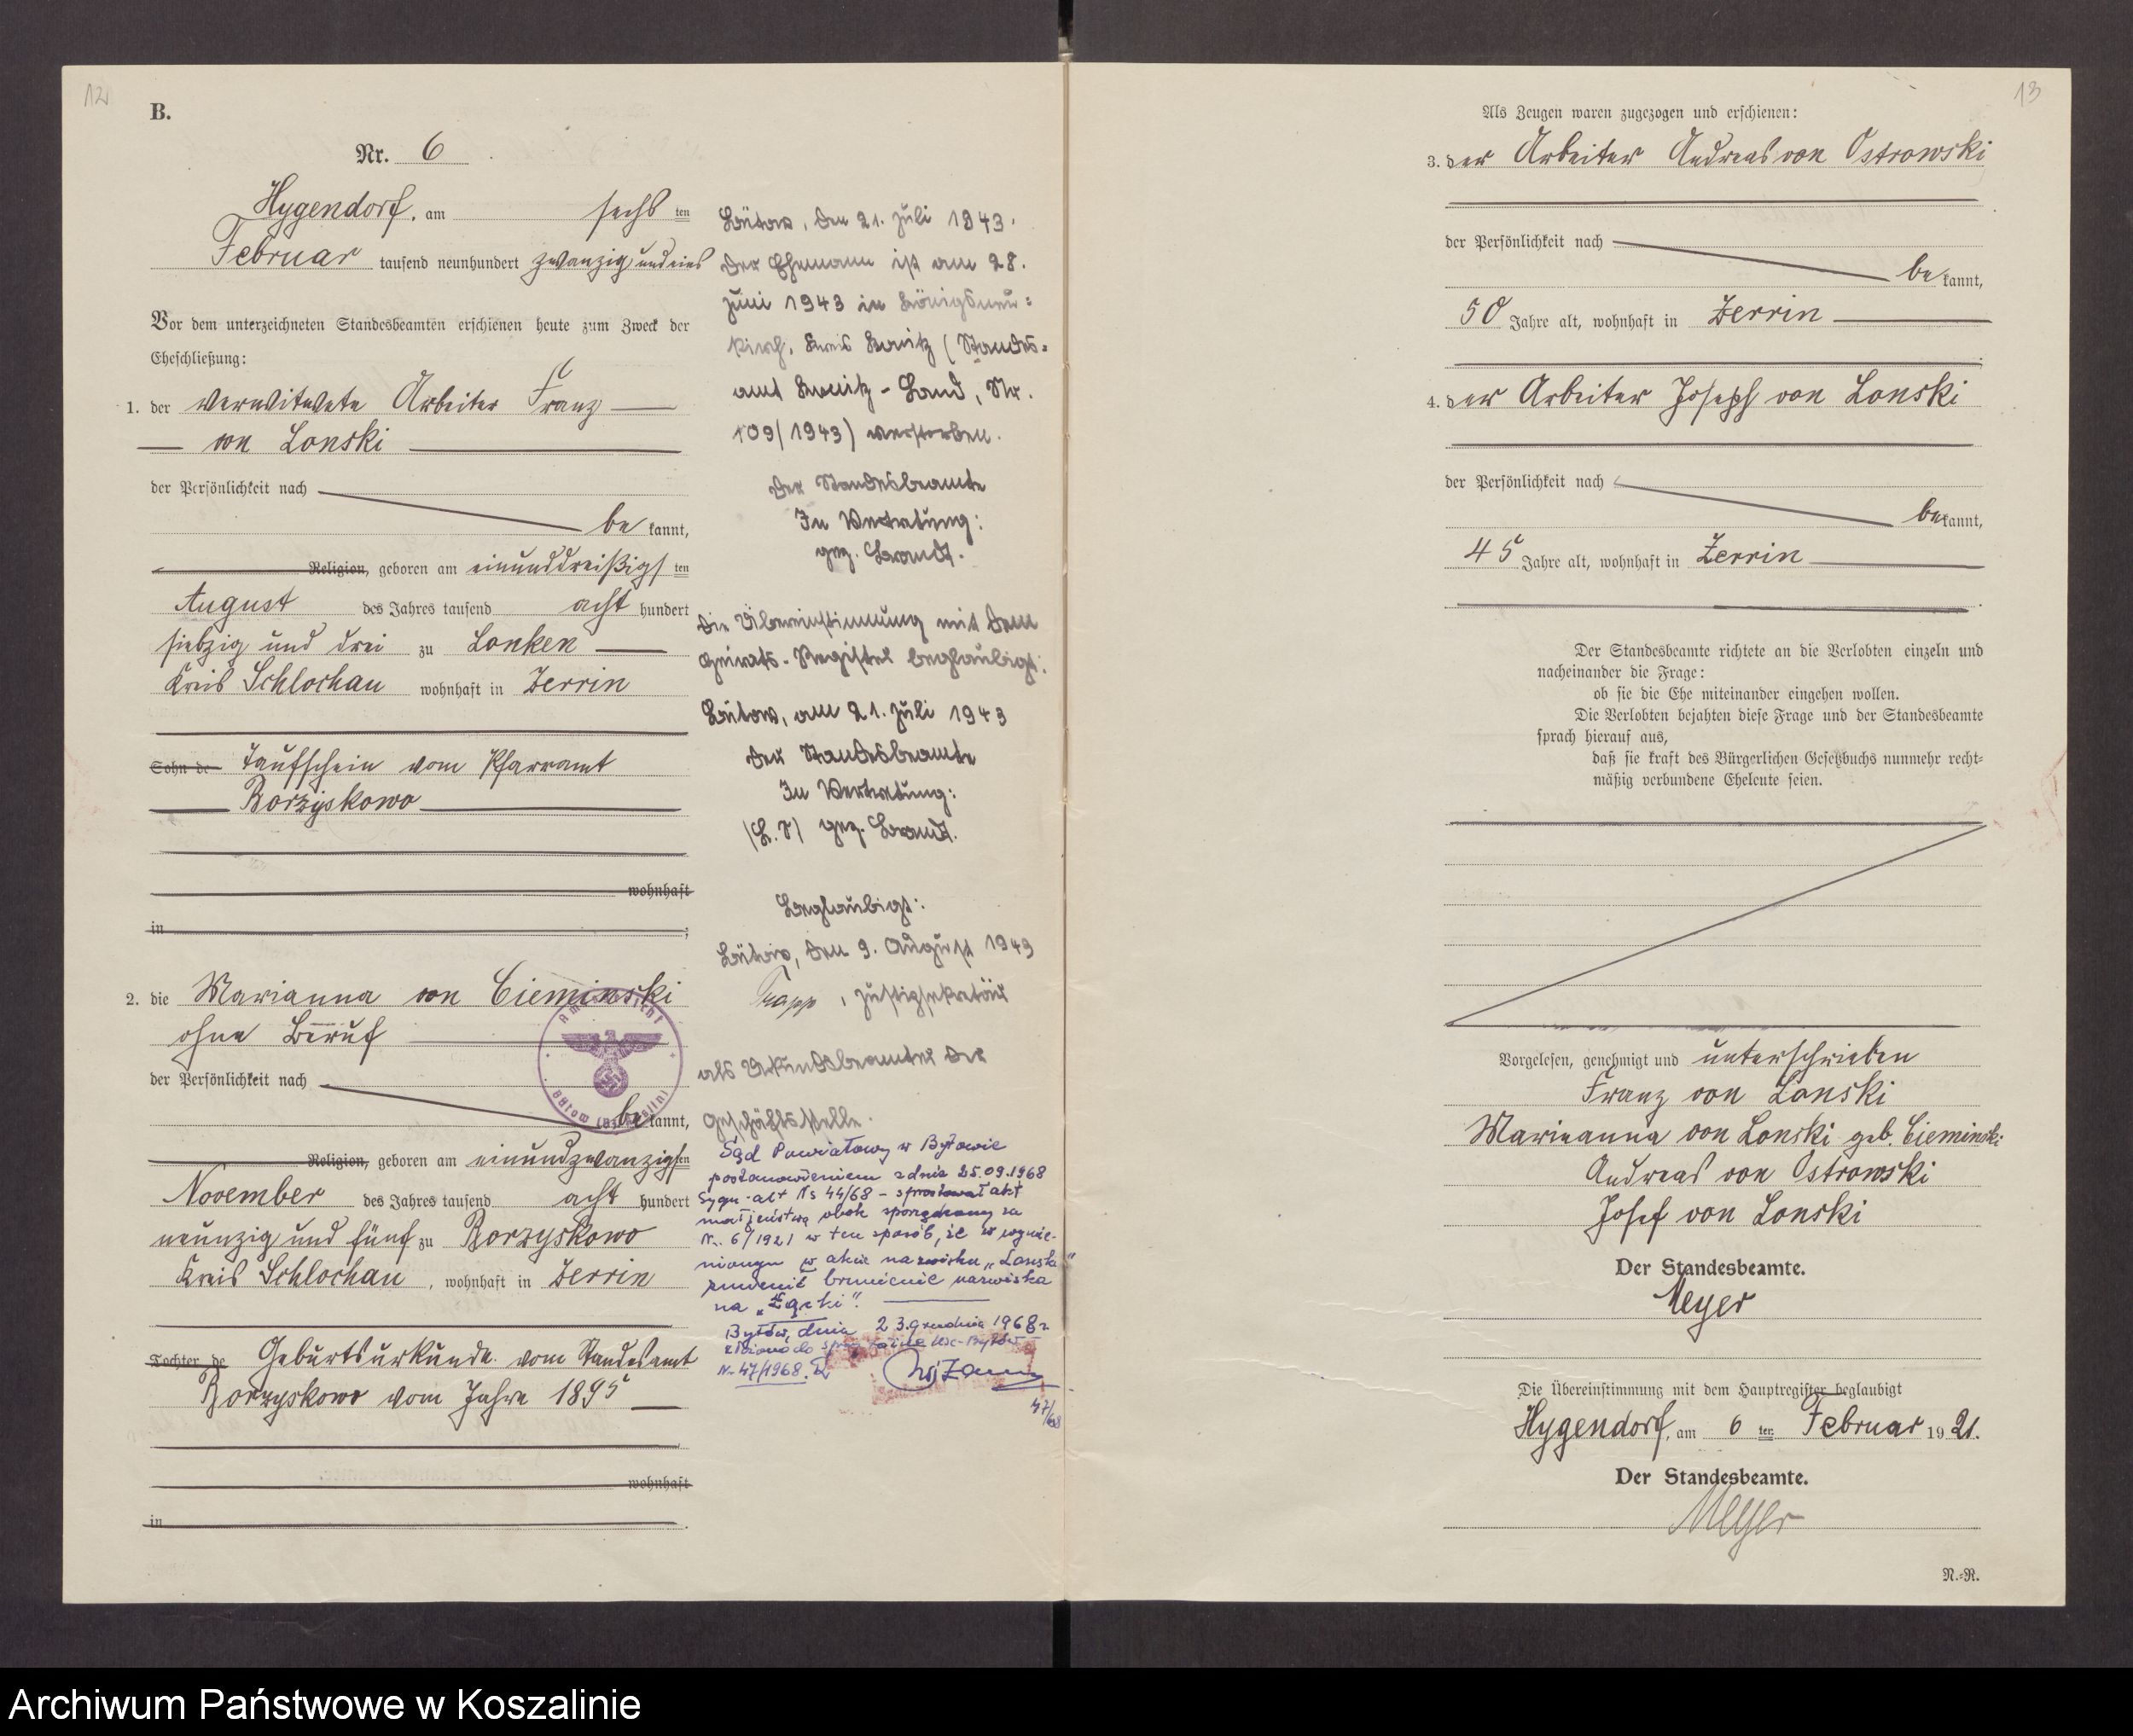 12
B.
Nr. 6
Hygendorf, am sechs ten
Februar tausend neunhundert zwanzig und eins
Vor dem unterzeichneten Standesbeamten erschienen heute zum Zweck der
Eheschließung:
1. der verwitwete Arbeiter Franz
von Lonski
der Persönlichkeit nach
be kannt,
Religion, geboren am einunddreißigsten
August des Jahres tausend acht hundert
siebzig und drei zu Lonken
Kreis Schlochau wohnhaft in Zerrin
Sohn de Taufschein vom Pfarramt
Borzyskowo
wohnhaft
in
2. die Marianna von Cieminski
ohne Beruf
der Persönlichkeit nach
be kannt,
Religion, geboren am einundzwanzigsten
November des Jahres tausend acht hundert
neunzig und fünf zu Borzyskowo
Kreis Schlochau, wohnhaft in Zerrin
Tochter de Geburtsurkunde vom Standesamt
Borzyskowo vom Jahre 1895
wohnhaft
in
Bütow, den 21. Juli 1943.
Der Ehemann ist am 28.
Juni 1943 in Königsneu=
kirch, Kreis Konitz (Standes=
amt Konitz - Land, Nr.
109/1943) verstorben.
Der Standesbeamte
In Vertretung:
gez. Brandt.
Die Übereinstimmung mit dem
Heirats-Register beglaubigt:
Bütow, am 21. Juli 1943
Der Standesbeamte
In Vertretung:
(L.S) gez. Brandt.
Beglaubigt:
Bütow, den 9. August 1943
Trapp, Justizsekretär
als Urkundsbeamter der
Geschäftsstelle.
Sąd Powiatowy w Bytowie
postanowieniem z dnia 25.09.1968
Sygn. akt Ns 44/68 - sprostował akt
małżeństwa obok sporządzony za
Nr. 6/1921 w ten sposób, że
w akcie nazwisku „Lonski"
brzmienie nazwiska
na „Łącki".
Bytów, dnia 23 grudnia 1968 r.
Nr 47/1968.
47/68
13
Als Zeugen waren zugezogen und erschienen:
3. der Arbeiter Andreas von Ostrowski
der Persönlichkeit nach
be kannt,
50 Jahre alt, wohnhaft in Zerrin
4. der Arbeiter Joseph von Lonski
der Persönlichkeit nach
be kannt,
45 Jahre alt, wohnhaft in Zerrin
Der Standesbeamte richtete an die Verlobten einzeln und
nacheinander die Frage:
ob sie die Ehe miteinander eingehen wollen.
Die Verlobten bejahten diese Frage und der Standesbeamte
sprach hierauf aus,
daß sie kraft des Bürgerlichen Gesetzbuchs nunmehr recht=
mäßig verbundene Eheleute seien.
Vorgelesen, genehmigt und unterschrieben
Franz von Lonski
Marieanna von Lonski geb. Cieminski
Andreas von Ostrowski
Josef von Lonski
Der Standesbeamte.
Meyer
Die Übereinstimmung mit dem Hauptregister beglaubigt
Hygendorf, am 6 ten Februar 1921.
Der Standesbeamte.
Meyer
N.=R.
Archiwum Państwowe w Koszalinie